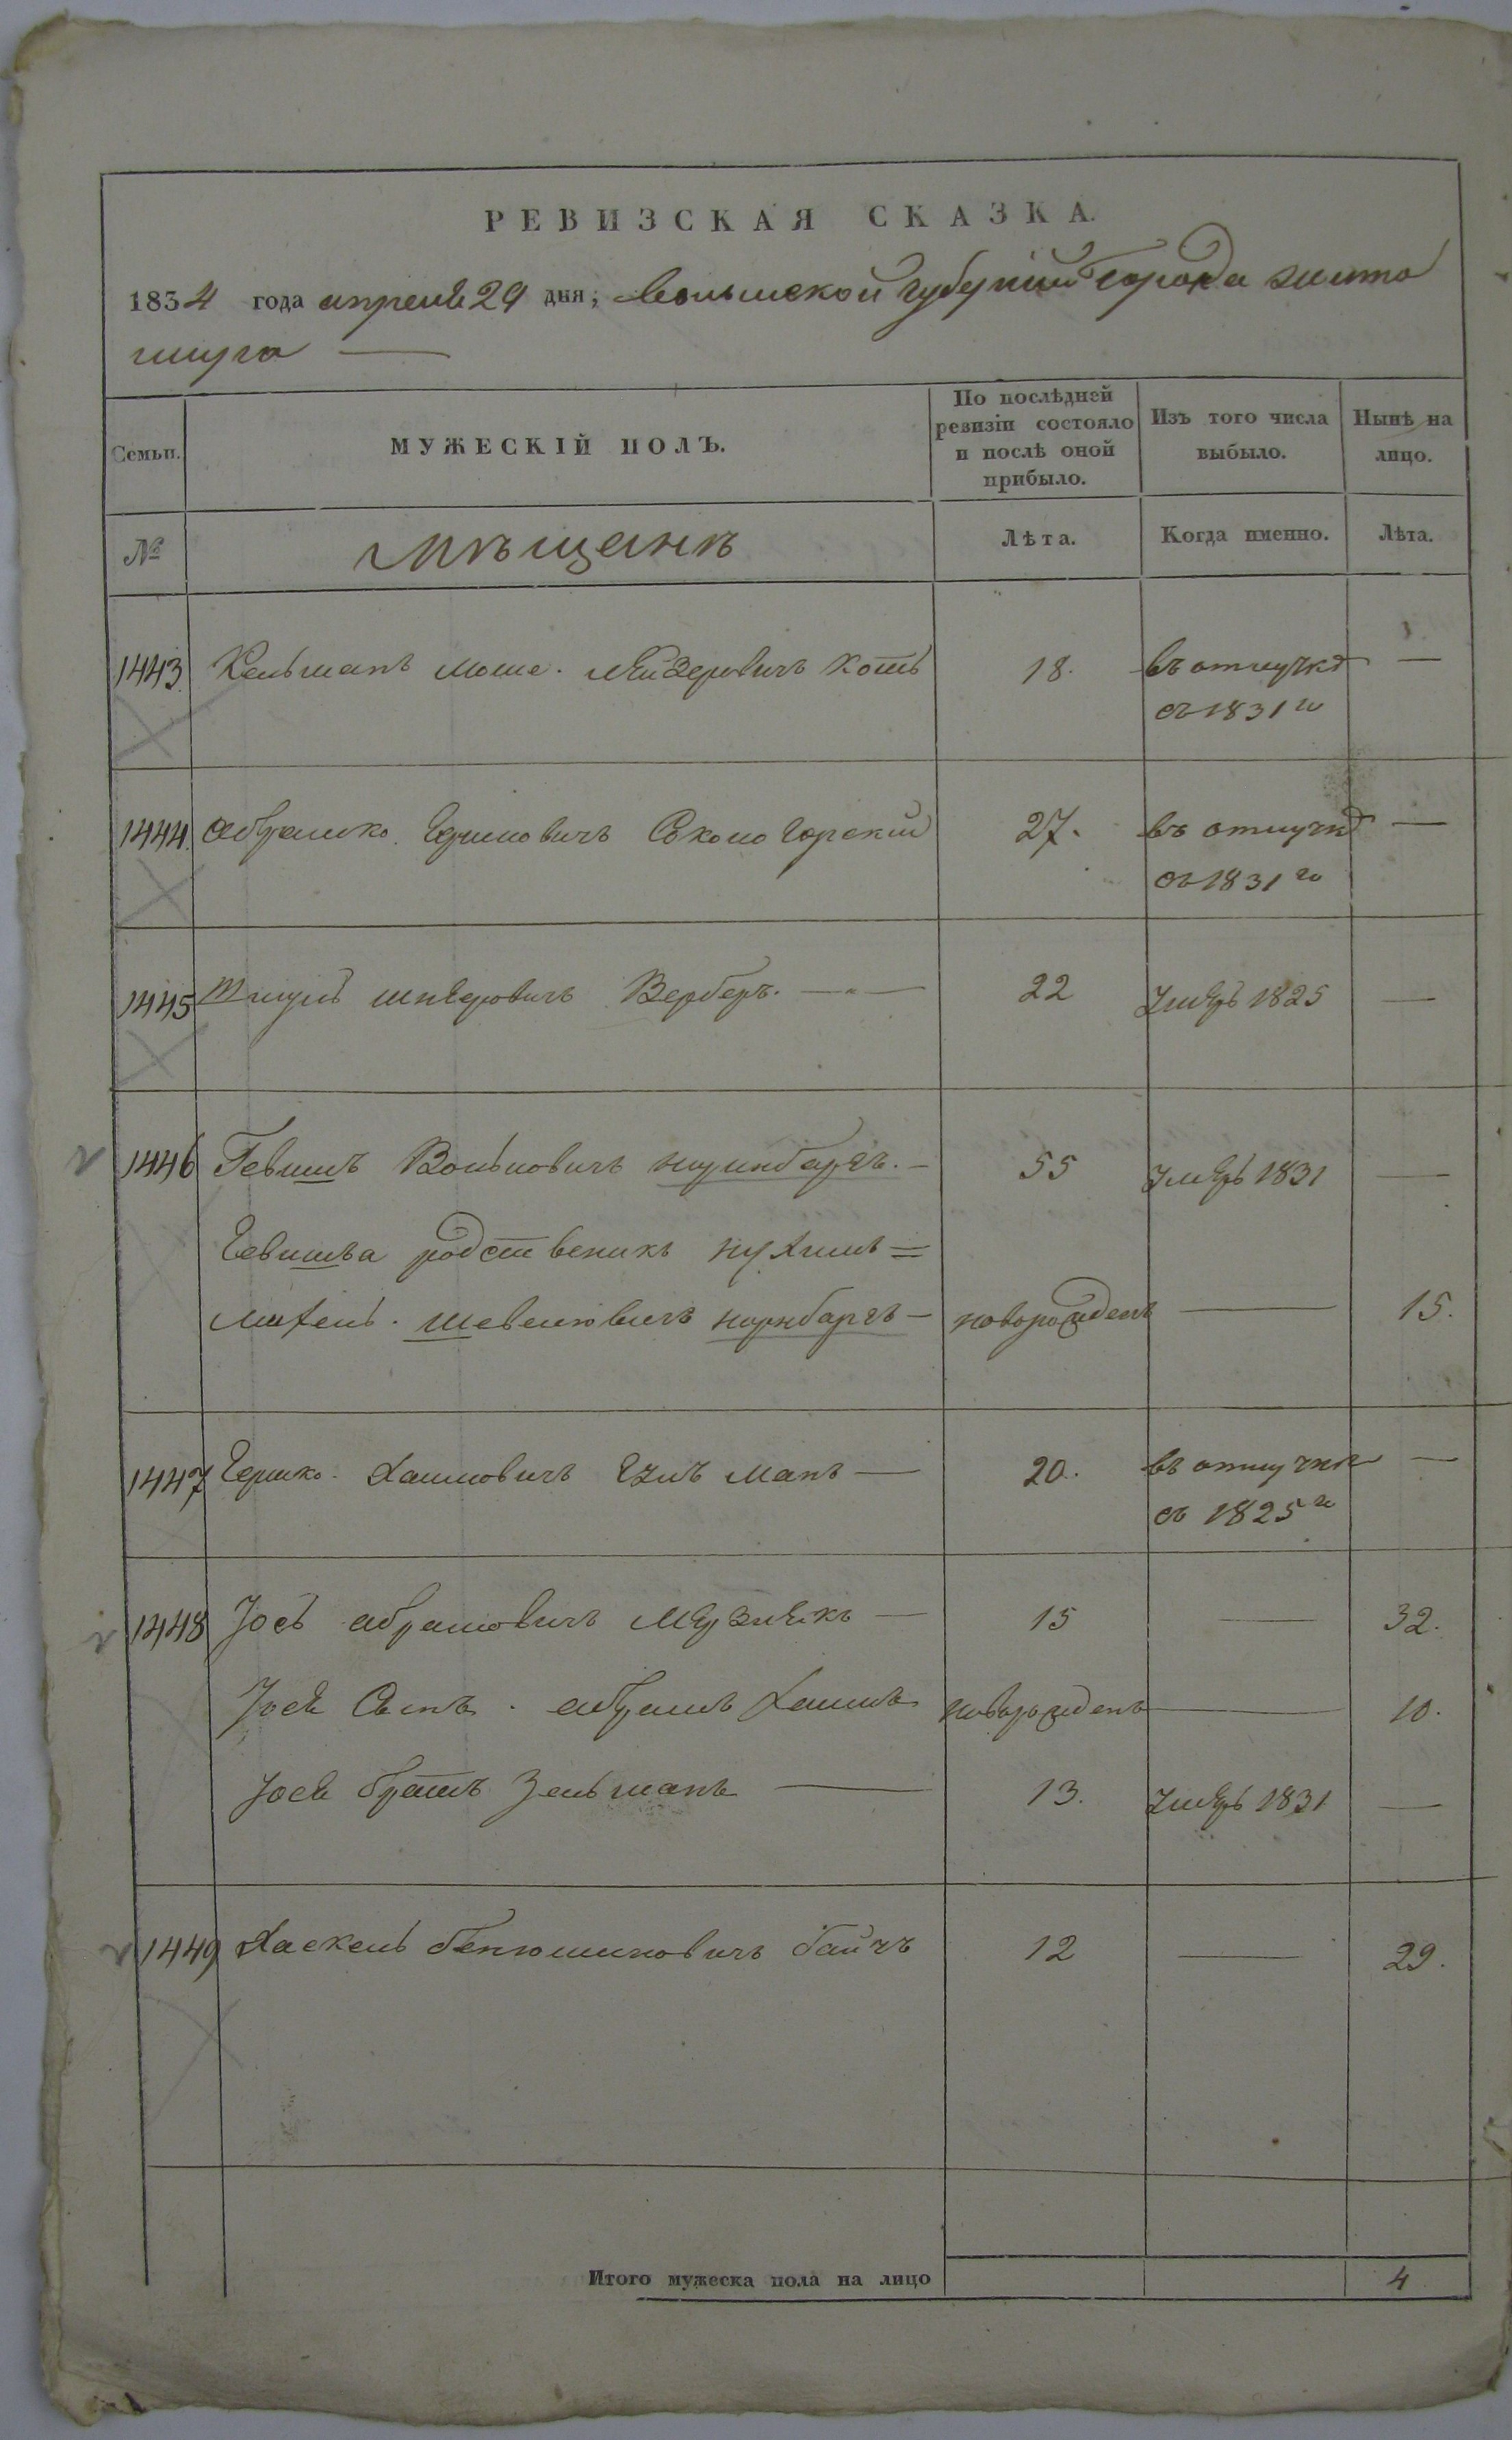 РЕВИЗСКАЯ СКАЗКА.
1834 года апреля 29 дня; Волынской губернии города Жито
мира —
Семьи.
МУЖЕСКІЙ ПОЛЪ.
По послѣдней ревизіи состояло и послѣ оной прибыло.
Изъ того числа выбыло.
Нынѣ на лицо.
№
Мѣщанъ
Лѣта.
Когда именно.
Лѣта.
1443 Кельманъ Моше. Лейзеровичъ Котъ 18. въ отлучкѣ —
съ 1831го
1444 Абрамко. Ершковичъ Сокологорский 27. въ отлучкѣ —
съ 1831го
1445 Шмуль Вербер. — 22 умеръ 1825 —
1446 Гевишъ Вольковичъ — 55 умеръ 1831 —
Гевиша родственикъ Нухимъ=
Михель. Шевелювичъ Нирнбаргъ — новорожденъ — 15.
1447 Ершко. Хаимовичъ манъ — 20. въ отлучкѣ —
съ 1825го
1448 Іосъ Абрамовичъ — 15 — 32.
Іося Сынъ. Абрамъ Хаимъ новорожденъ — 10.
Іося братъ Зельманъ — 13. умеръ 1831 —
1449 Хаскель Бенюминовичъ 12 — 29.
Итого мужеска пола на лицо 4